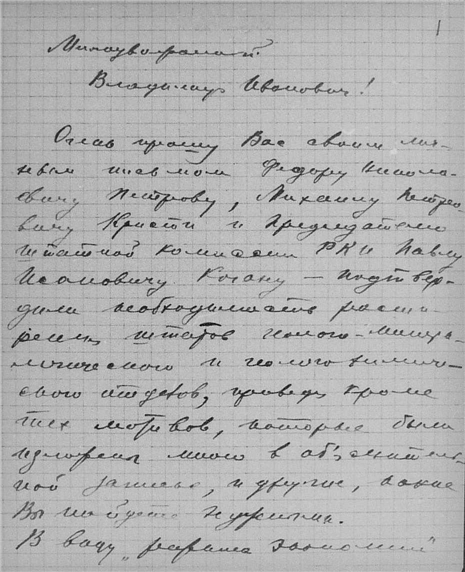 1
Многоуважаемый
Владимир Иванович!
Очень прошу Вас своим лич-
ным письмом Федору Никола-
евичу Петрову, Михаилу Петро-
вичу Кристи и Председателю
штатной комиссии РКИ Павлу
Исаковичу Когану — подтвер-
дить необходимость расши-
рения штатов геолого-минера-
логического и геологохимиче-
ского отделов, приведя кроме
тех мотивов, которые были
изложены мною в объяснитель-
ной записке, и другие, какие
Вы найдете нужными.
В виду „режима экономии"